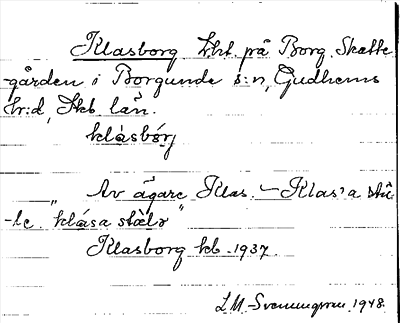 Klasborg Lht. på Borg. Skatte
-gården i Borgunda s:n, Gudhems
hr:d, Skb län.
klásbórj
Av ägare Klas. – Klas'a stä
-le. "klása stälə"
Klasborg kb. 1937.
L.M. Svenungsson 1948.